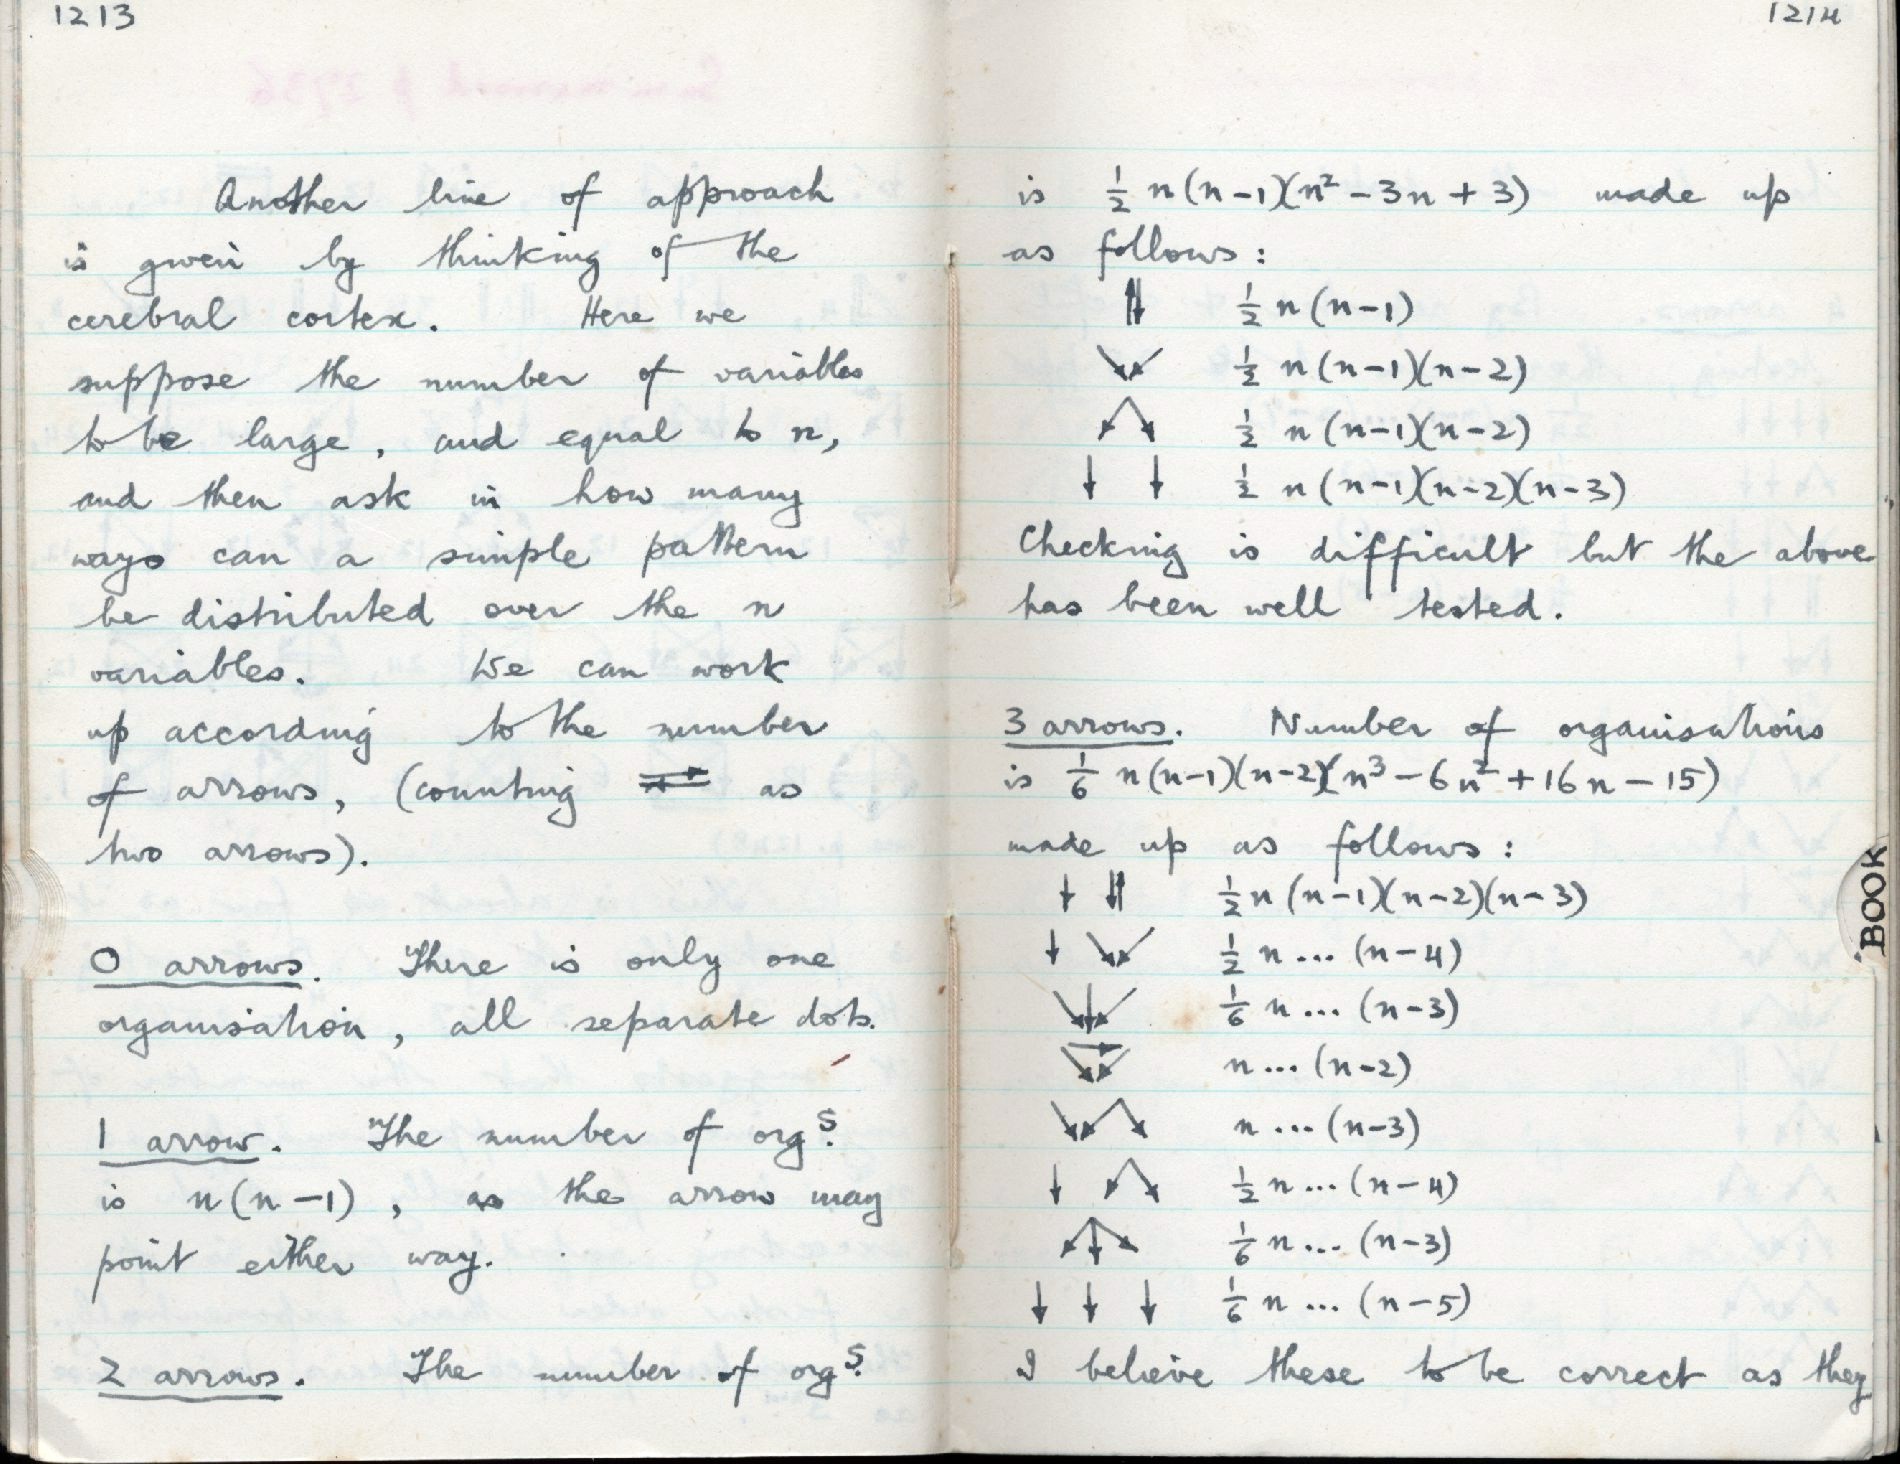 1213
Another line of approach
is given by thinking of the
cerebral cortex. Here we
suppose the number of variables
to be large, and equal to n,
and then ask in how many
ways can a simple pattern
be distributed over the n
variables. We can work
up according to the number
of arrows, (counting ⇌ as
two arrows).
0 arrows. There is only one
organisation, all separate dots.
1 arrow. The number of orgs.
is n(n-1), as the arrow may
point either way.
2 arrows. The number of orgs.
1214
is ½ n(n-1)(n² - 3n + 3) made up
as follows:
½ n(n-1)
½ n(n-1)(n-2)
½ n(n-1)(n-2)
½ n(n-1)(n-2)(n-3)
Checking is difficult but the above
has been well tested.
3 arrows. Number of organisations
is 1/6 n(n-1)(n-2)(n³ - 6n² + 16n - 15)
made up as follows:
½ n(n-1)(n-2)(n-3)
½ n...(n-4)
1/6 n...(n-3)
n...(n-2)
n...(n-3)
½ n...(n-4)
1/6 n...(n-3)
1/6 n...(n-5)
I believe these to be correct as they
BOOK